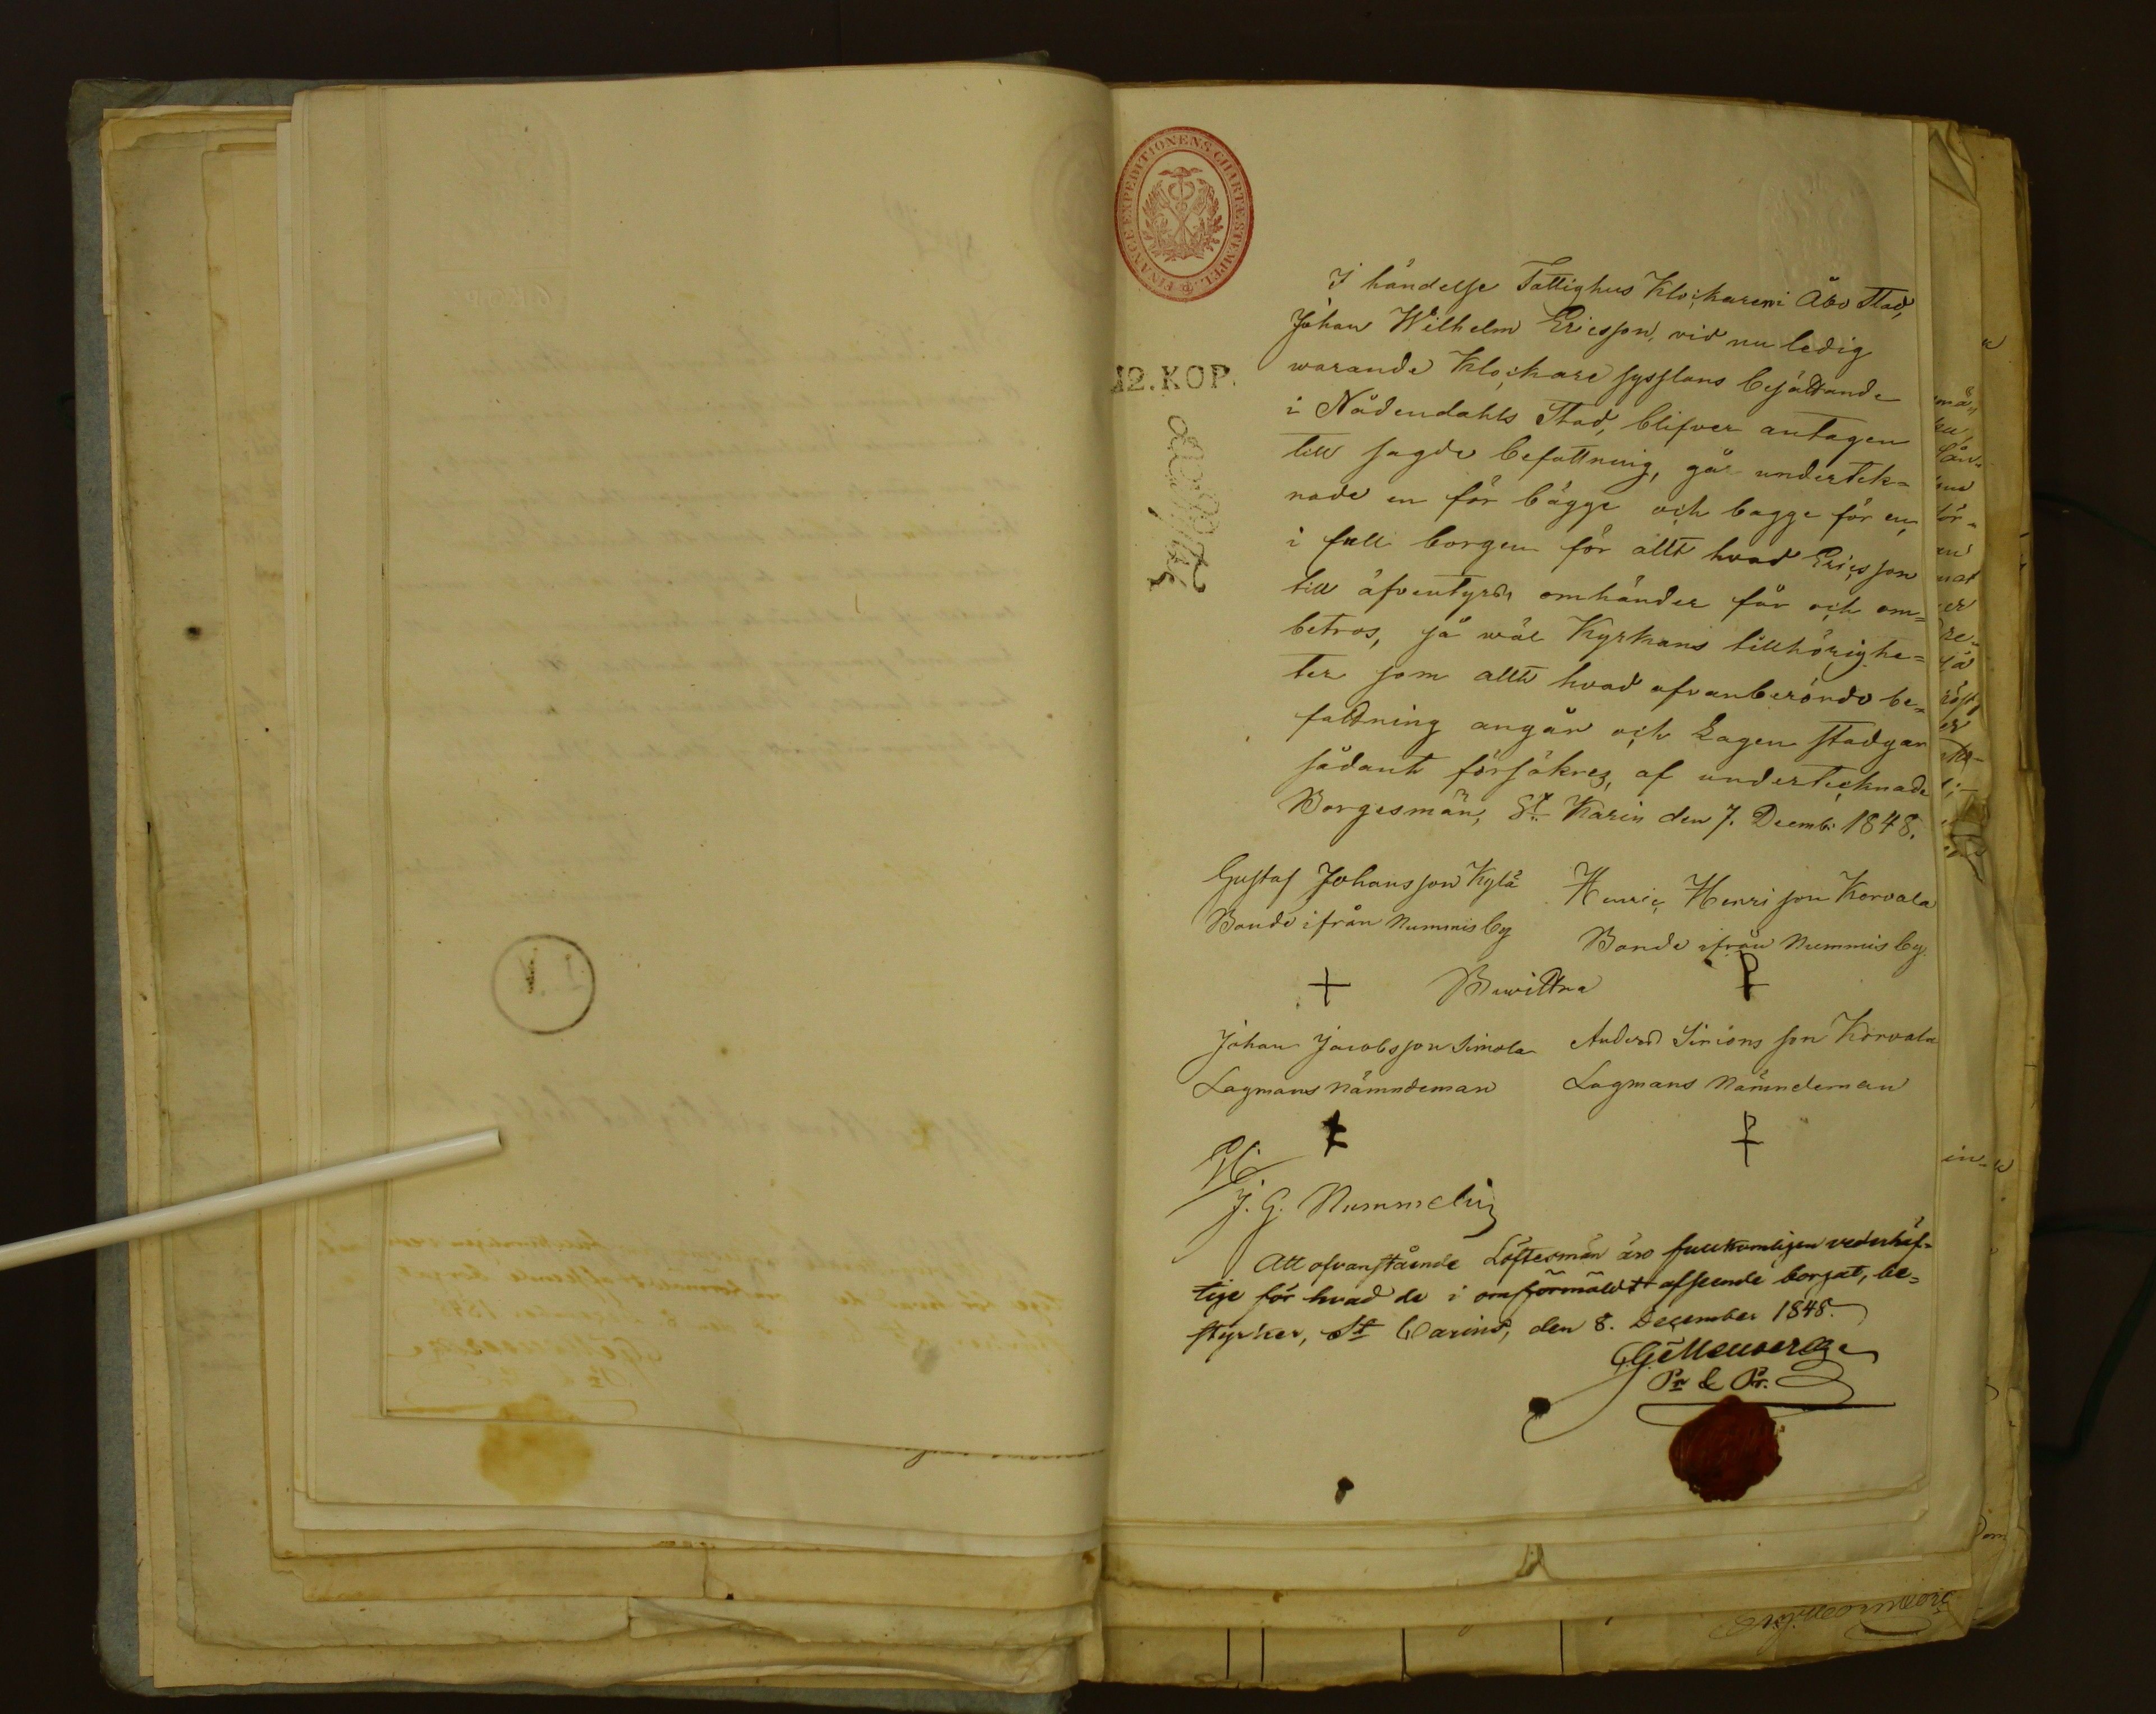 FINANCE EXPEDITIONENS CHARTÆ STEMPEL.
12. KOP.
I händelse Fattighus Klockaren i Åbo Stad,
Johan Wilhelm Ericsson, vid nu ledig
warande Klockare sysslans besättande
i Nådendahls Stad, blifver antagen
till sagde befattning, går undertek=
nade en för bägge och bägge för en,
i full borgen för allt hvad Ericsson
till äfventyrs omhänder får och om=
betros, så wäl Kyrkans tillhörighe=
ter som allt hvad ofvanberörde be=
fattning angår och Lagen stadgar
sådant försäkras, af undertecknade
Borgesmän, St Karin den 7. Decemb: 1848.
Gustaf Johansson Kylä
Bonde ifrån Nummis by
Henric Henrisson Korvala
Bonde ifrån Nummis by
Bewittna
Johan Jacobsson Simola
Lagmans Nämndeman
Anders Simons son Korvala
Lagmans Nämndeman
J. G. Nummelin
Att ofvanstående Löftesmän äro fullkomligen vederhäf=
tige för hvad de i omförmäldt afseende borgat, be=
styrker, St Carins, den 8. December 1848.
Pr & Pr.